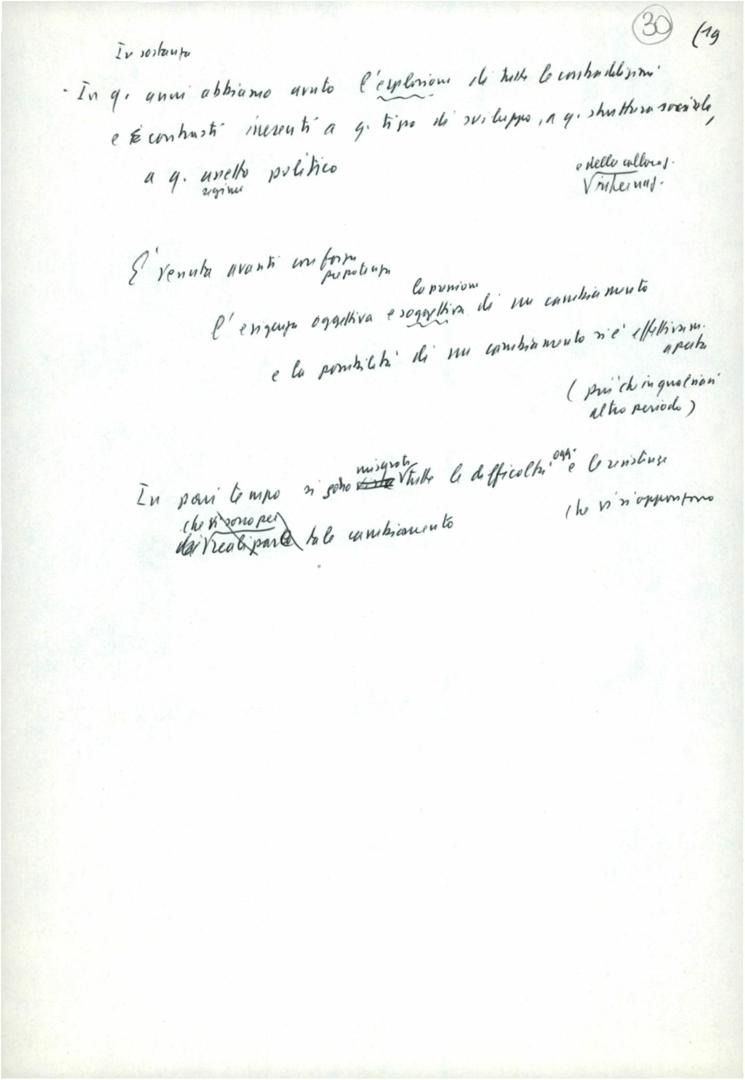 30 (19
In sostanza
- In q. anni abbiamo avuto l'esplosione di tutte le contraddizioni
e contrasti inerenti a q. tipo di sviluppo, a q. struttura sociale,
a q. assetto politico
regime
e della collocaz.
internaz.
E' venuta avanti con forza
prepotenza
la passione
l'esigenza oggettiva e soggettiva di un cambiamento
e la possibilità di un cambiamento si è effettivam.
aperta
( più che in qualsiasi
altro periodo )
misurate oggi
In pari tempo si sono tutte le difficoltà e le resistenze
che vi si oppongono
che vi sono per
tale cambiamento